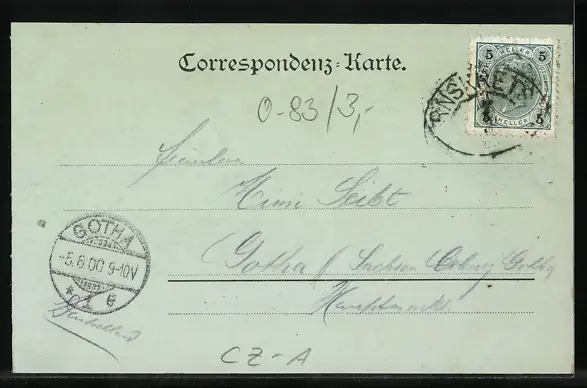 Correspondenz-Karte.
5 HELLER 5
5 HELLER 5
0-83/3,-
Fräulein
Mimi Seibt
Gotha (Sachsen Coburg Gotha
GOTHA
-5.6.00 9-10V
* 1 e
CZ-A